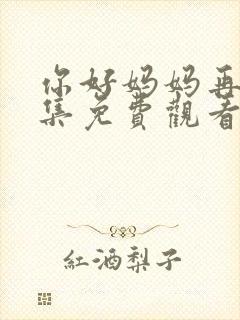 你好妈妈再
集免費觀看
紅酒梨子